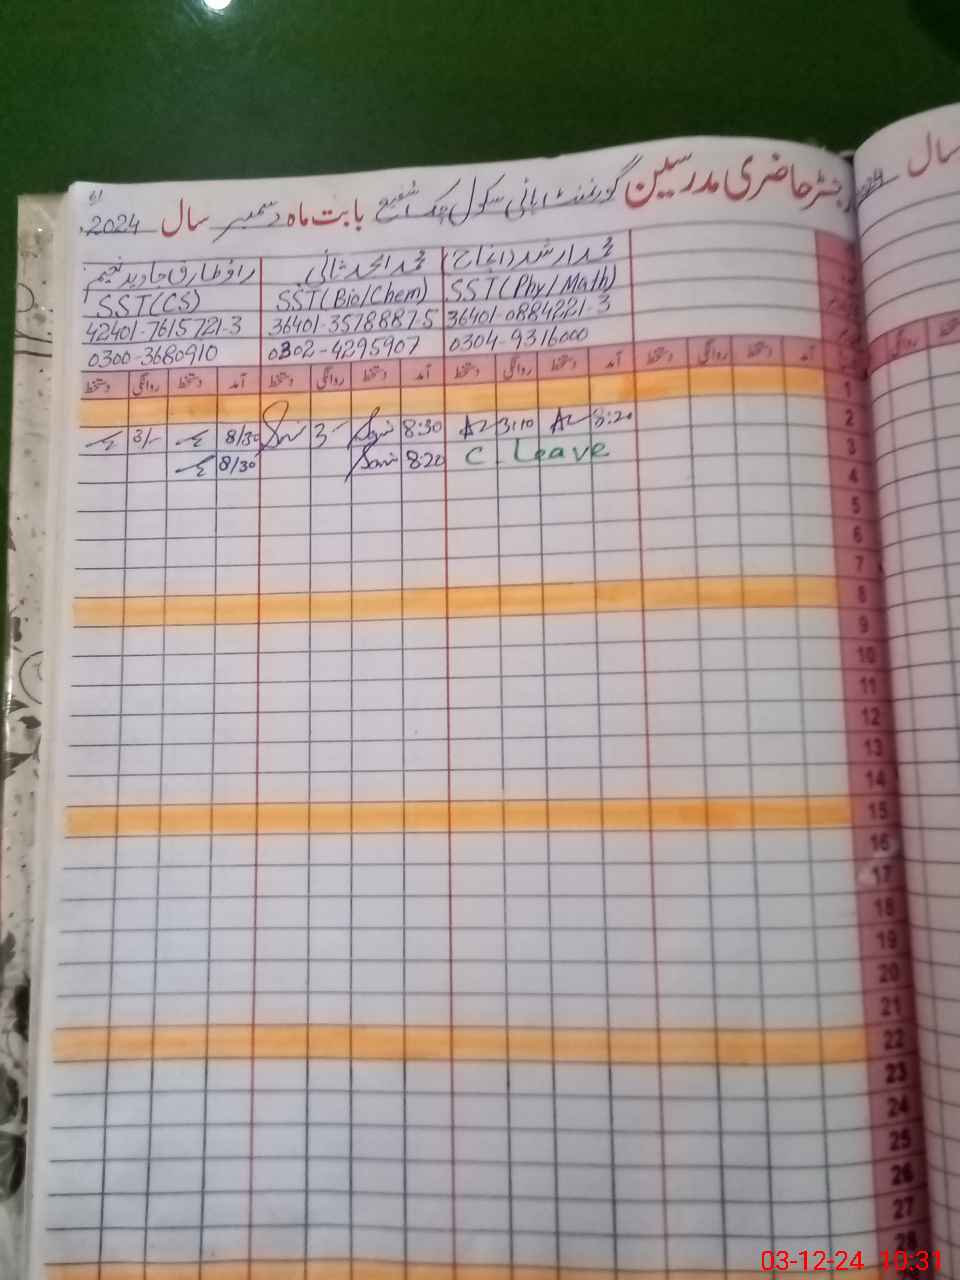 رجسٹر حاضری مدرسین گورنمنٹ ہائی سکول چک شفیع بابت ماہ دسمبر سال 2024
سال
محمد ارشد (انچارج) محمد امجد ثانی راؤ طارق جاوید نعیم
SST(CS) SST(Bio/Chem) SST(Phy/Math)
42401-7615721-3 36401-3578887-5 36401-0884221-3
0300-3680910 0302-4295907 0304-9316000
آمد دستخط روانگی دستخط آمد دستخط روانگی دستخط آمد دستخط روانگی دستخط آمد دستخط روانگی دستخط
1
3/- 8/30 3- 8:30 3:10 8:20 2
8/30 8:20 C. Leave 3
4
5
6
7
8
9
10
11
12
13
14
15
16
17
18
19
20
21
22
23
24
25
26
27
28
03-12-24 10:31